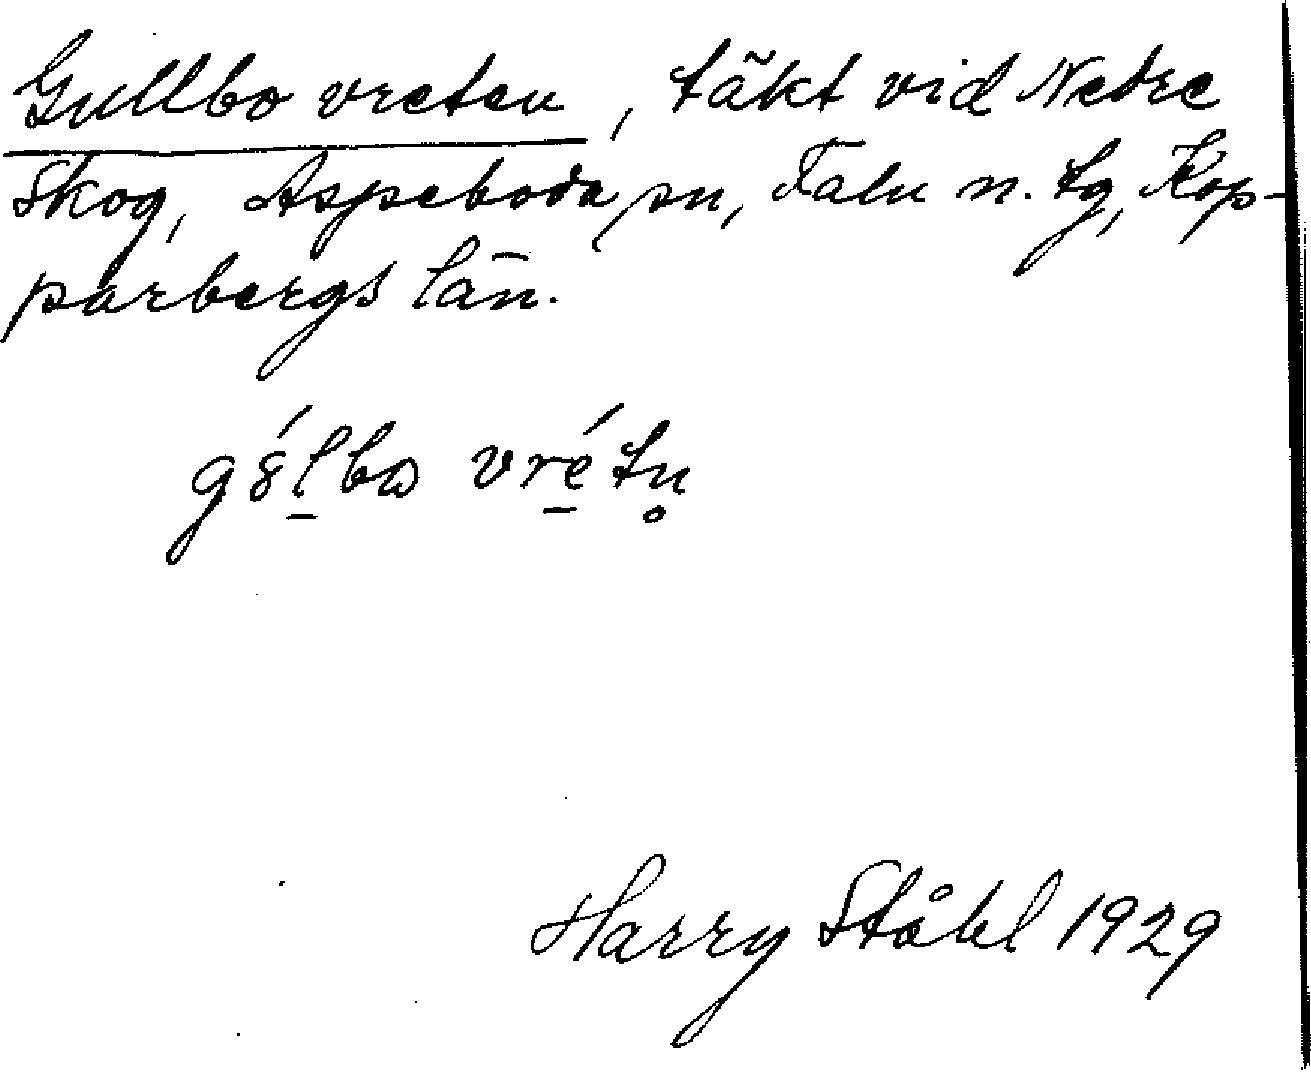 Gullbo vreten, täkt vid Nedre
Skog, Aspeboda sn, Falu n. tg, Kop-
parbergs län.
gȣ́l̲bω vré̲tn̥
Harry Ståhl 1929